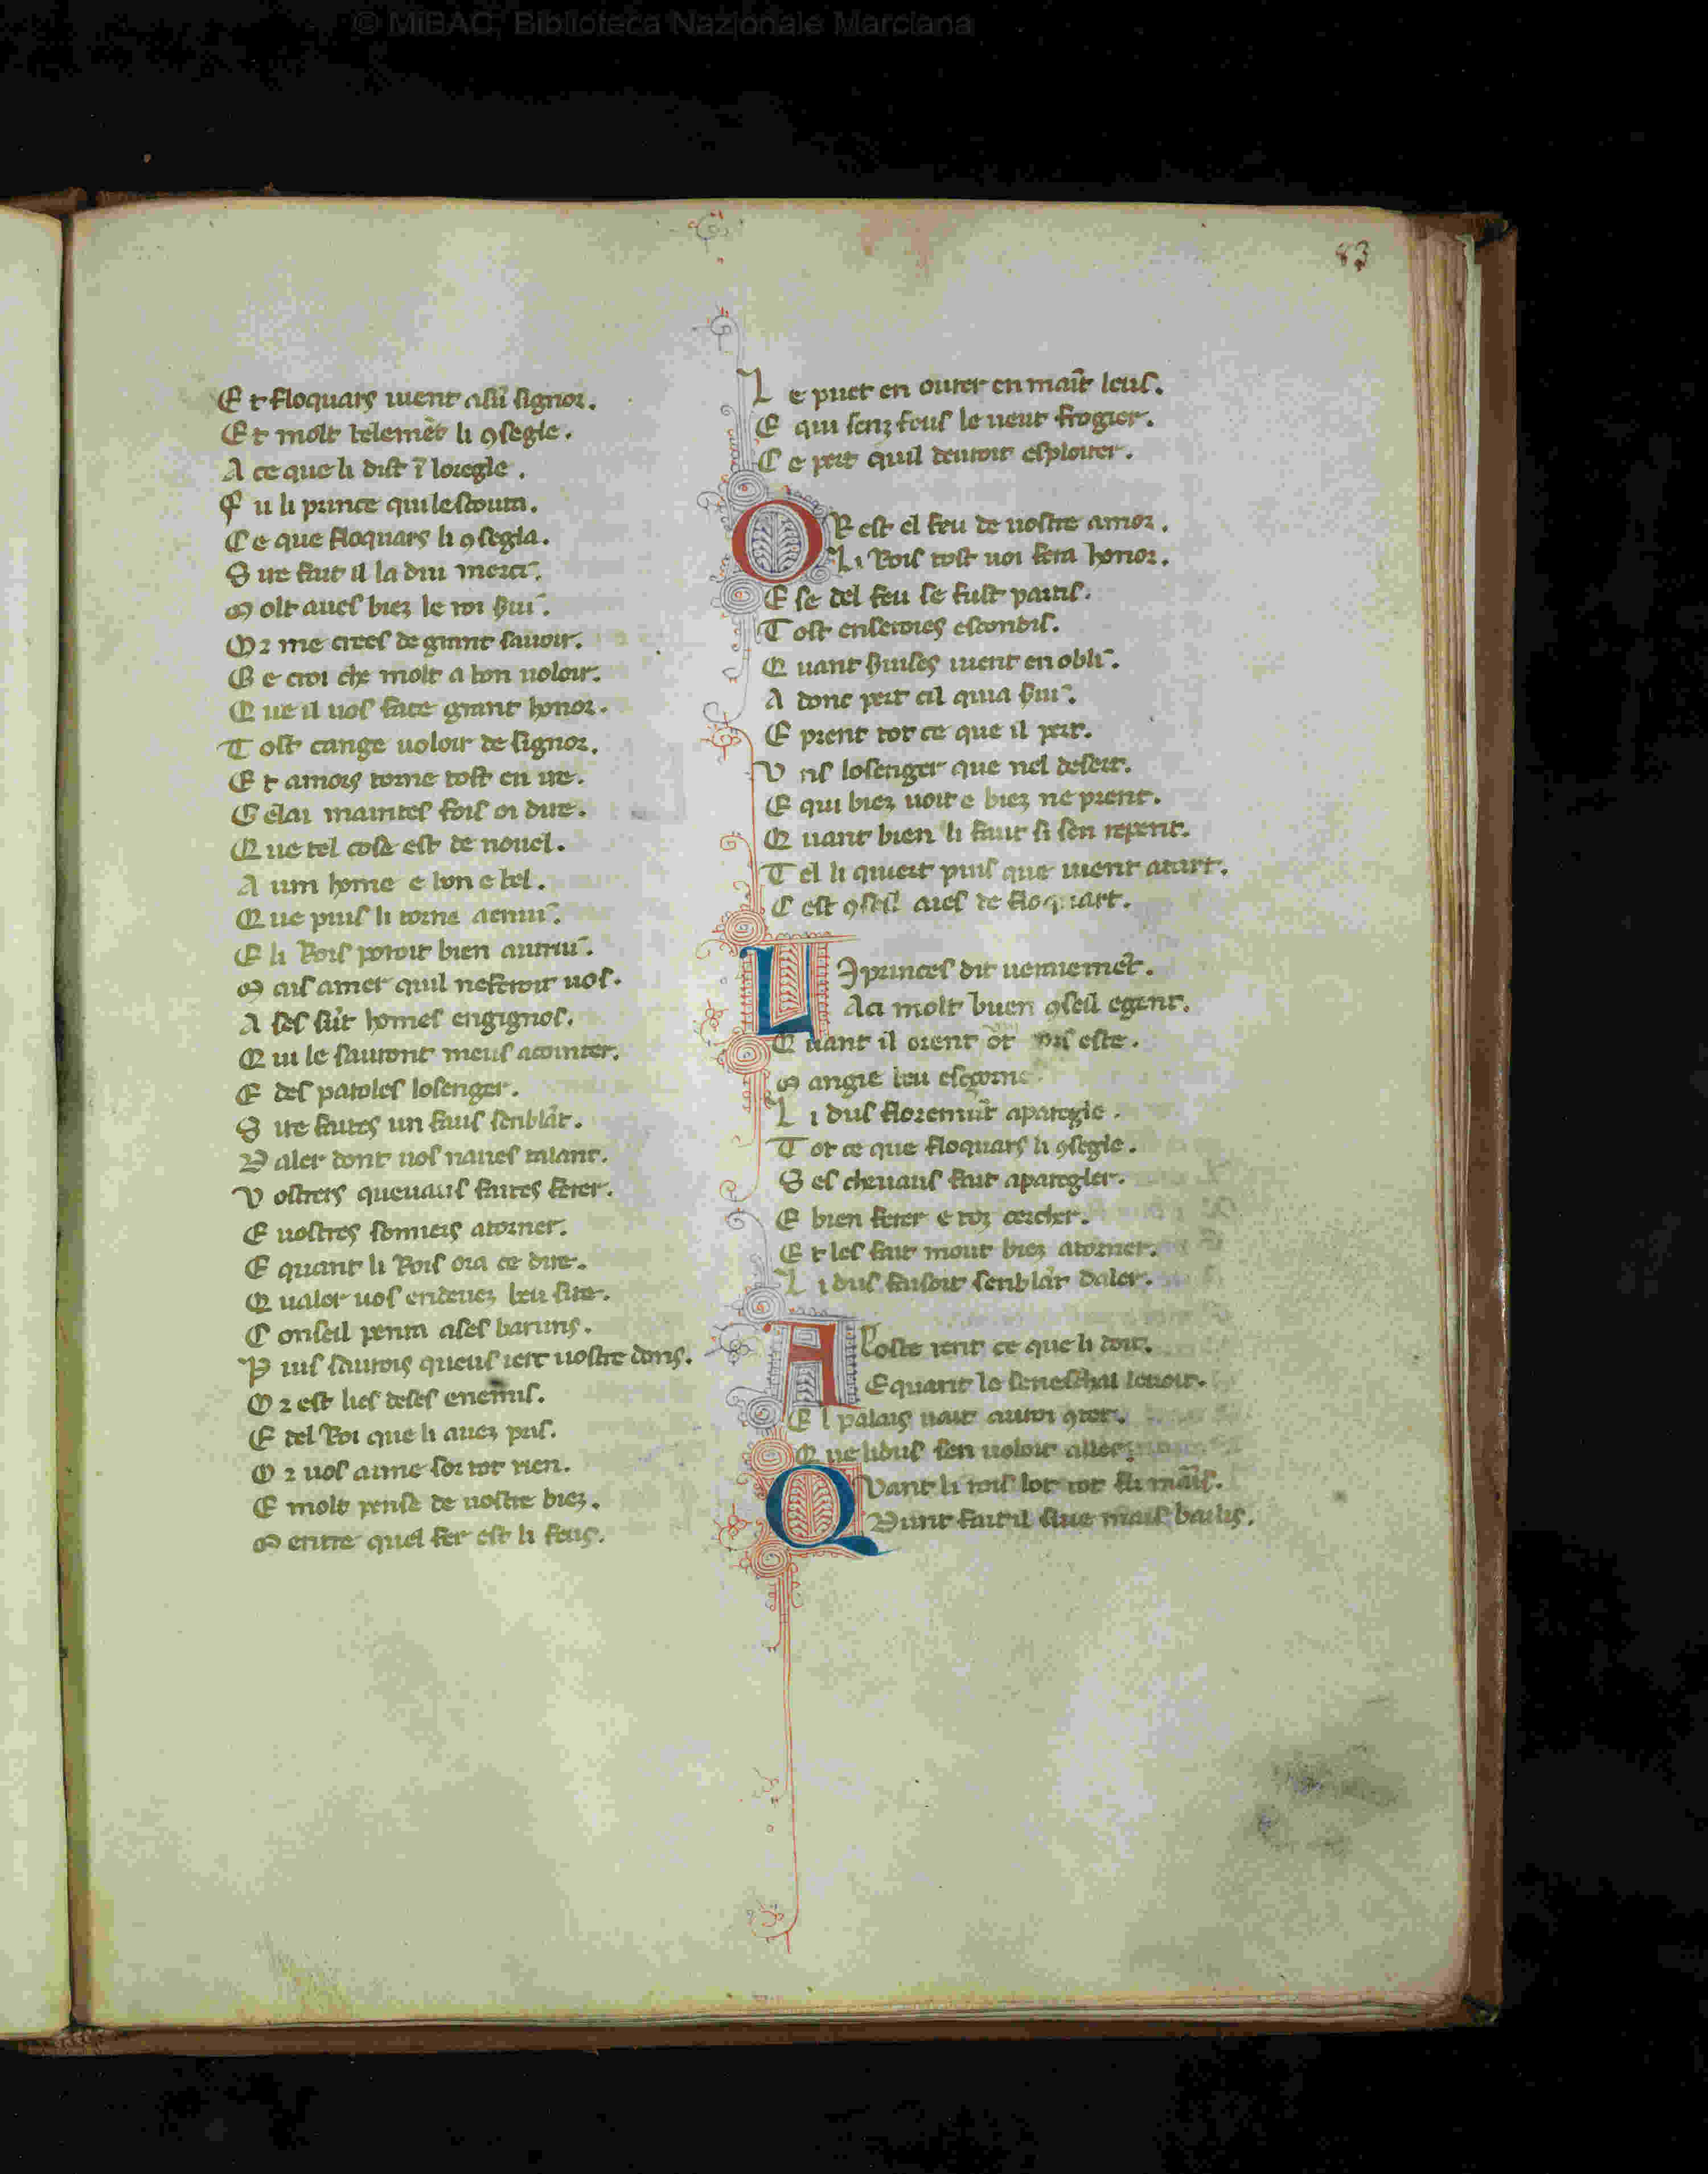 © MiBAC, Biblioteca Nazionale Marciana
83
E t floquars uient asũ signor.
E t molt belemẽt li ꝯsegle.
A ce que li dist ĩ loregle.
F u li prince qui lescouta.
C e que floquars li ꝯsegla.
S ire fait il la diu merci.
M olt aues biez le roi
O r me crees de grant sauoir.
G e croi che molt a bon uoloir.
Q ue il uos face grant honor.
T ost cange uoloir de signor.
E t amors torne tost en ire.
C ẽlai maintes fois oi dire.
Q ue tel cose est de nouel.
A um home e bon e bel.
Q ue puis li torne aenui.
E li Rois poroit bien autrui.
M ais amer quil neferoit uos.
A ses sũt homes engignos.
Q ui le sauront meus acointer.
E des paroles losenger.
S ire faites un faus senblãt.
D aler dont uos naues talant.
V ostrers queuaus faites ferer.
E uostres somiers atorner.
E quant li Rois ora ce dire.
Q ualer uos endeuez beu sire.
C onseil penra ases baruns.
P uis saurois queus iert uostre dons.
O r est lies deses enemis.
E del Roi que li auez pris.
O r uos aime sor tot rien.
E molt pense de uostre biez.
M entre quel fer est li feus.
L e puet en ourer en maĩt leus.
E qui senz feus le ueut frogier.
C e pert quil deuroit esploiter.
O R est el feu de uostre amor.
L i Rois tost uoi fera honor.
E se del feu se fust partis.
T ost enseroies escondis.
Q uant uient en obli.
A donc pert cil quia
E prent tot ce que il pert.
V ns losenger que nel desert.
E qui biez uoit e biez ne prent.
Q uant bien li faut si sen repent.
T el li quiert puis que uient atart.
C est ꝯseil aies de floquart.
L I princes dit ueraiemẽt.
A ci molt buen ꝯseil egent.
Q uant il orent õt este.
M angie beu
L i dus floremũt aparegle.
T ot ce que floquars li ꝯsegle.
S es cheuaus fait aparegler.
E bien ferer e toz cercher.
E t les fait mout biez atorner.
L i dus faisoit senblãt daler.
A Loste rent ce que li doit.
E quant le seneschal
E l palais uait ꝯter.
Q ue lidus sen uoloit aller.
Q Vant li rois lot tot fu
D unt fait il sire mais bailis.